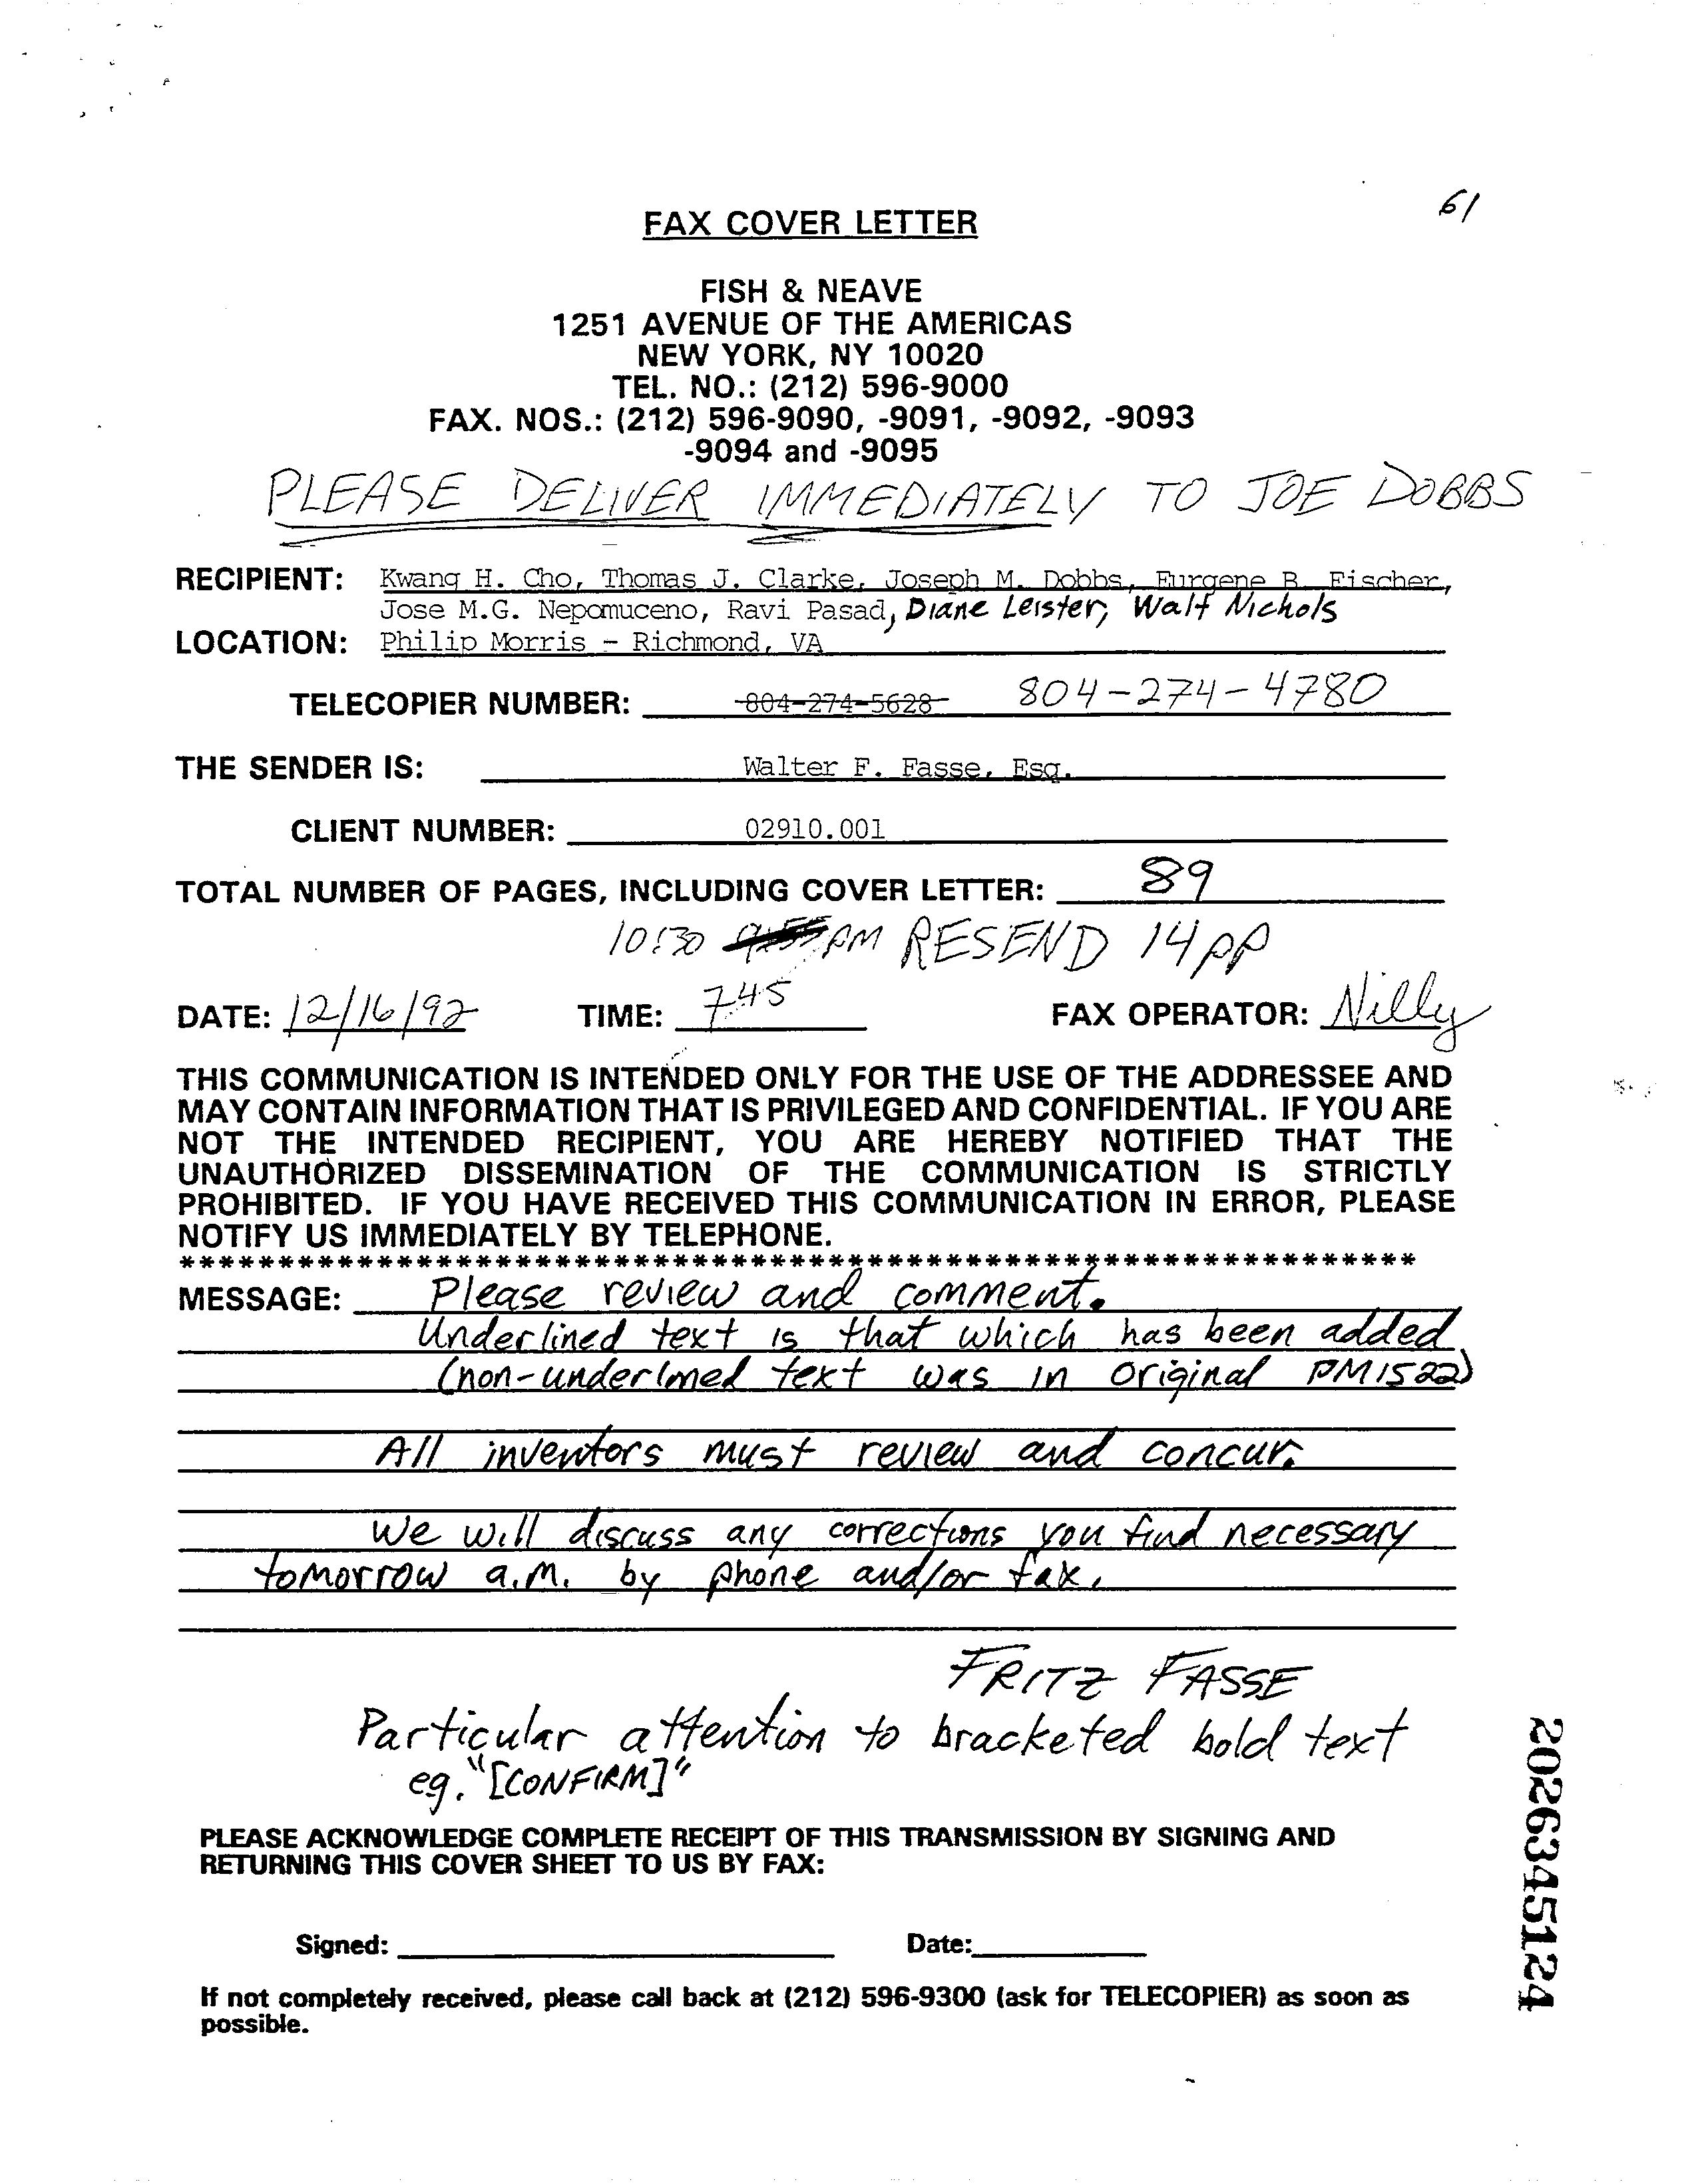 61
FAX COVER LETTER
FISH & NEAVE
1251 AVENUE OF THE AMERICAS
NEW YORK, NY 10020
TEL. NO.: (212) 596-9000
FAX. NOS.: (212) 596-9090, -9091, -9092, -9093
-9094 and -9095
PLEASE DELIVER IMMEDIATELY TO JOE DOBBS
RECIPIENT: Kwang H. Cho, Thomas J. Clarke, Joseph M. Dobbs, Eurgene B. Fischer,
Jose M.G. Nepomuceno, Ravi Pasad, Diane Leister, Walt Nichols
LOCATION: Philip Morris - Richmond, VA
TELECOPIER NUMBER: 804-274-5628 804-274-4780
THE SENDER IS: Walter F. Fasse, Esq.
CLIENT NUMBER: 02910.001
TOTAL NUMBER OF PAGES, INCLUDING COVER LETTER: 89
10:30 PM RESEND 14 pp
DATE: 12/16/92 TIME: 745 FAX OPERATOR: Nilly
THIS COMMUNICATION IS INTENDED ONLY FOR THE USE OF THE ADDRESSEE AND
MAY CONTAIN INFORMATION THAT IS PRIVILEGED AND CONFIDENTIAL. IF YOU ARE
NOT THE INTENDED RECIPIENT, YOU ARE HEREBY NOTIFIED THAT THE
UNAUTHORIZED DISSEMINATION OF THE COMMUNICATION IS STRICTLY
PROHIBITED. IF YOU HAVE RECEIVED THIS COMMUNICATION IN ERROR, PLEASE
NOTIFY US IMMEDIATELY BY TELEPHONE.
**************************************************************
MESSAGE: Please review and comment.
Underlined text is that which has been added
(non-underlined text was in original PM1522)
All inventors must review and concur.
We will discuss any corrections you find necessary
tomorrow a.m. by phone and/or fax.
FRITZ FASSE
Particular attention to bracketed bold text
eg. "[CONFIRM]"
PLEASE ACKNOWLEDGE COMPLETE RECEIPT OF THIS TRANSMISSION BY SIGNING AND
RETURNING THIS COVER SHEET TO US BY FAX:
Signed: Date:
If not completely received, please call back at (212) 596-9300 (ask for TELECOPIER) as soon as
possible.
2026345124